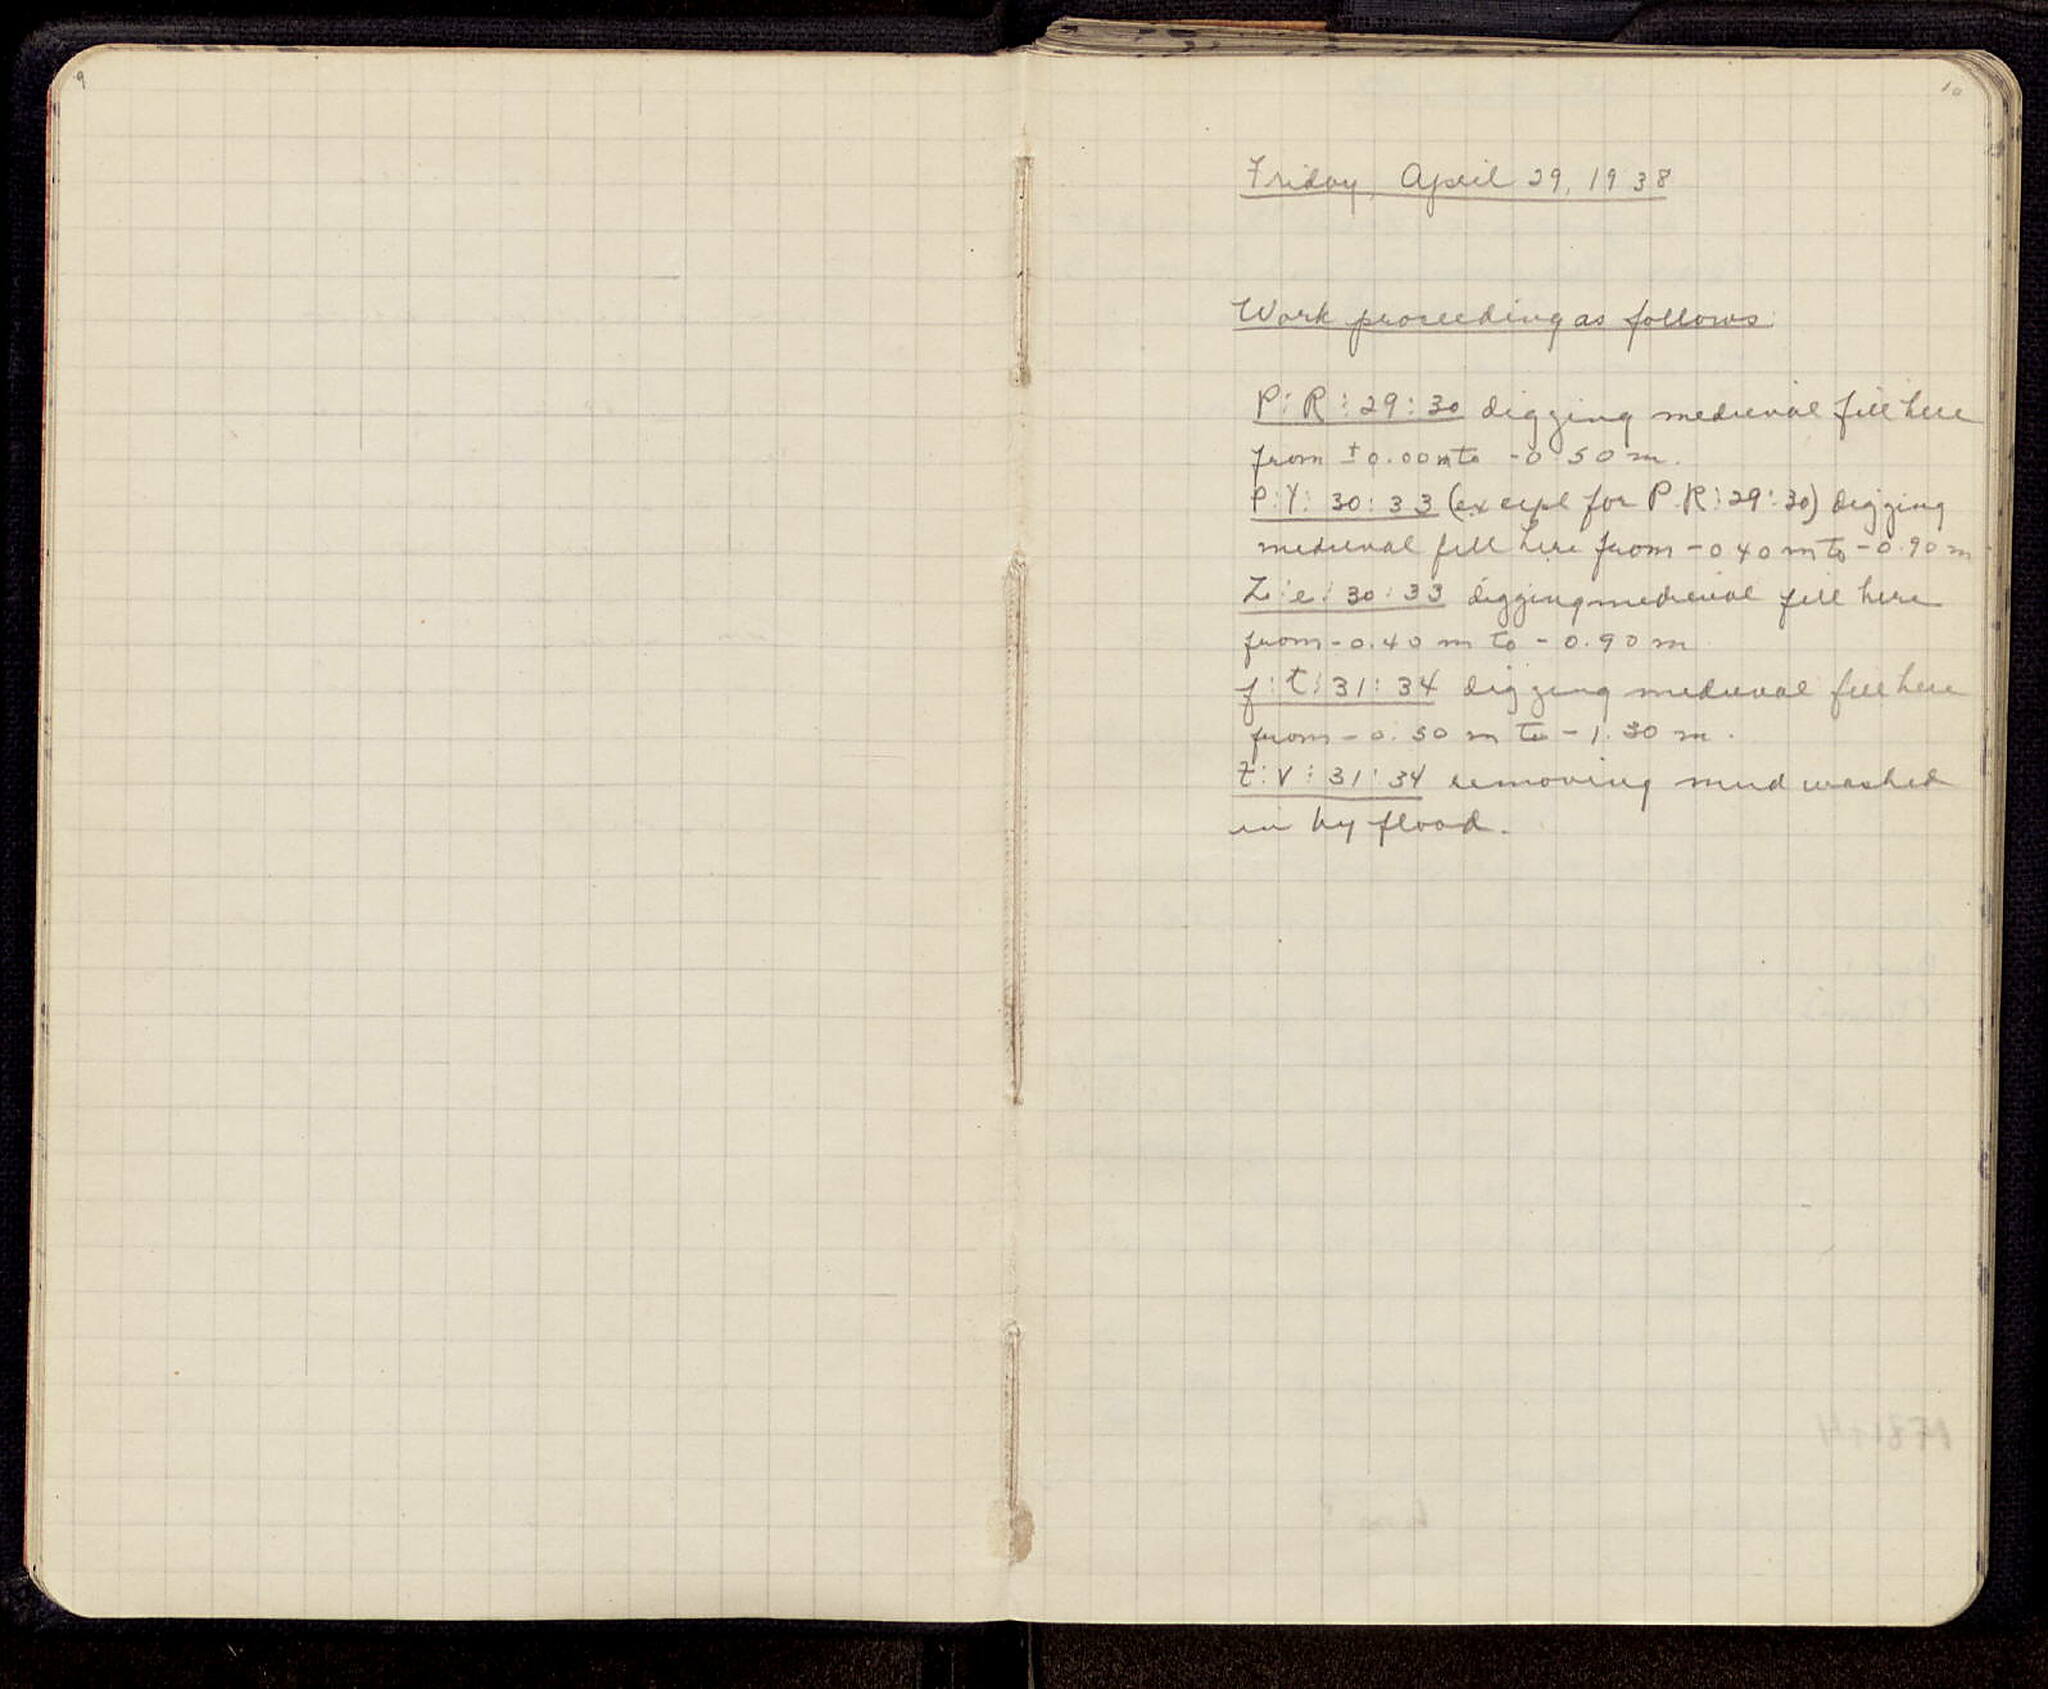 9
10
Friday, April 29, 1938
Work proceeding as follows:
P:R:29:30 digging medieval fill here
from ±0.00m to -0.50m.
P:Y:30:33 (except for P.R:29:30) digging
medieval fill here from -0.40m to -0.90m
Z:e:30:33 digging medieval fill here
from -0.40m to -0.90m
f:t:31:34 digging medieval fill here
from -0.50m to -1.30m.
t:v:31:34 removing mud washed
in by flood.